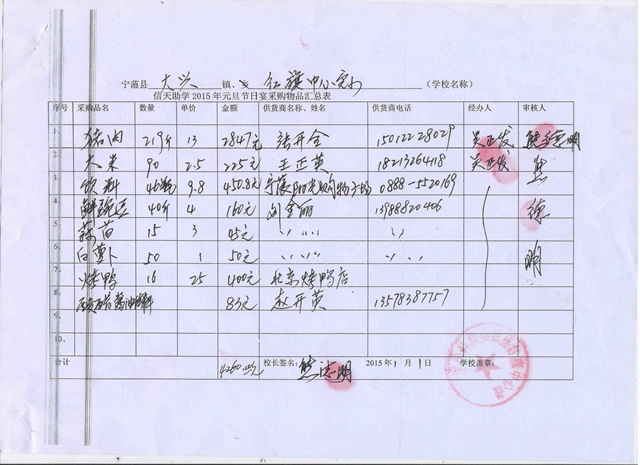 宁蒗县 大兴 镇、乡 红旗中心完小 (学校名称)
信天助学2015年元旦节日宴采购物品汇总表
序号 采购品名 数量 单价 金额 供货商名称、姓名 供货商电话 经办人 审核人
1、 猪肉 219斤 13 2847元 张开全 15012228029 吴正发
2、 大米 90 2.5 225元 王正英 18213264418 吴正发 熊
3、 饮料 46瓶 9.8 450.8元 购物广场 0888-5520169
4、 鲜豌豆 40斤 4 160元 刘金丽 13988820406 德
5、 蒜苗 15 3 45元 〃 〃 〃 〃 〃
6、 白萝卜 50 1 50元 〃 〃 〃 〃 〃 明
7、 烤鸭 16 25 400元 北京烤鸭店
8、 83元 赵开英 13578387757
9、
10、
合计 校长签名: 熊德明 2015年1月1日 学校盖章: